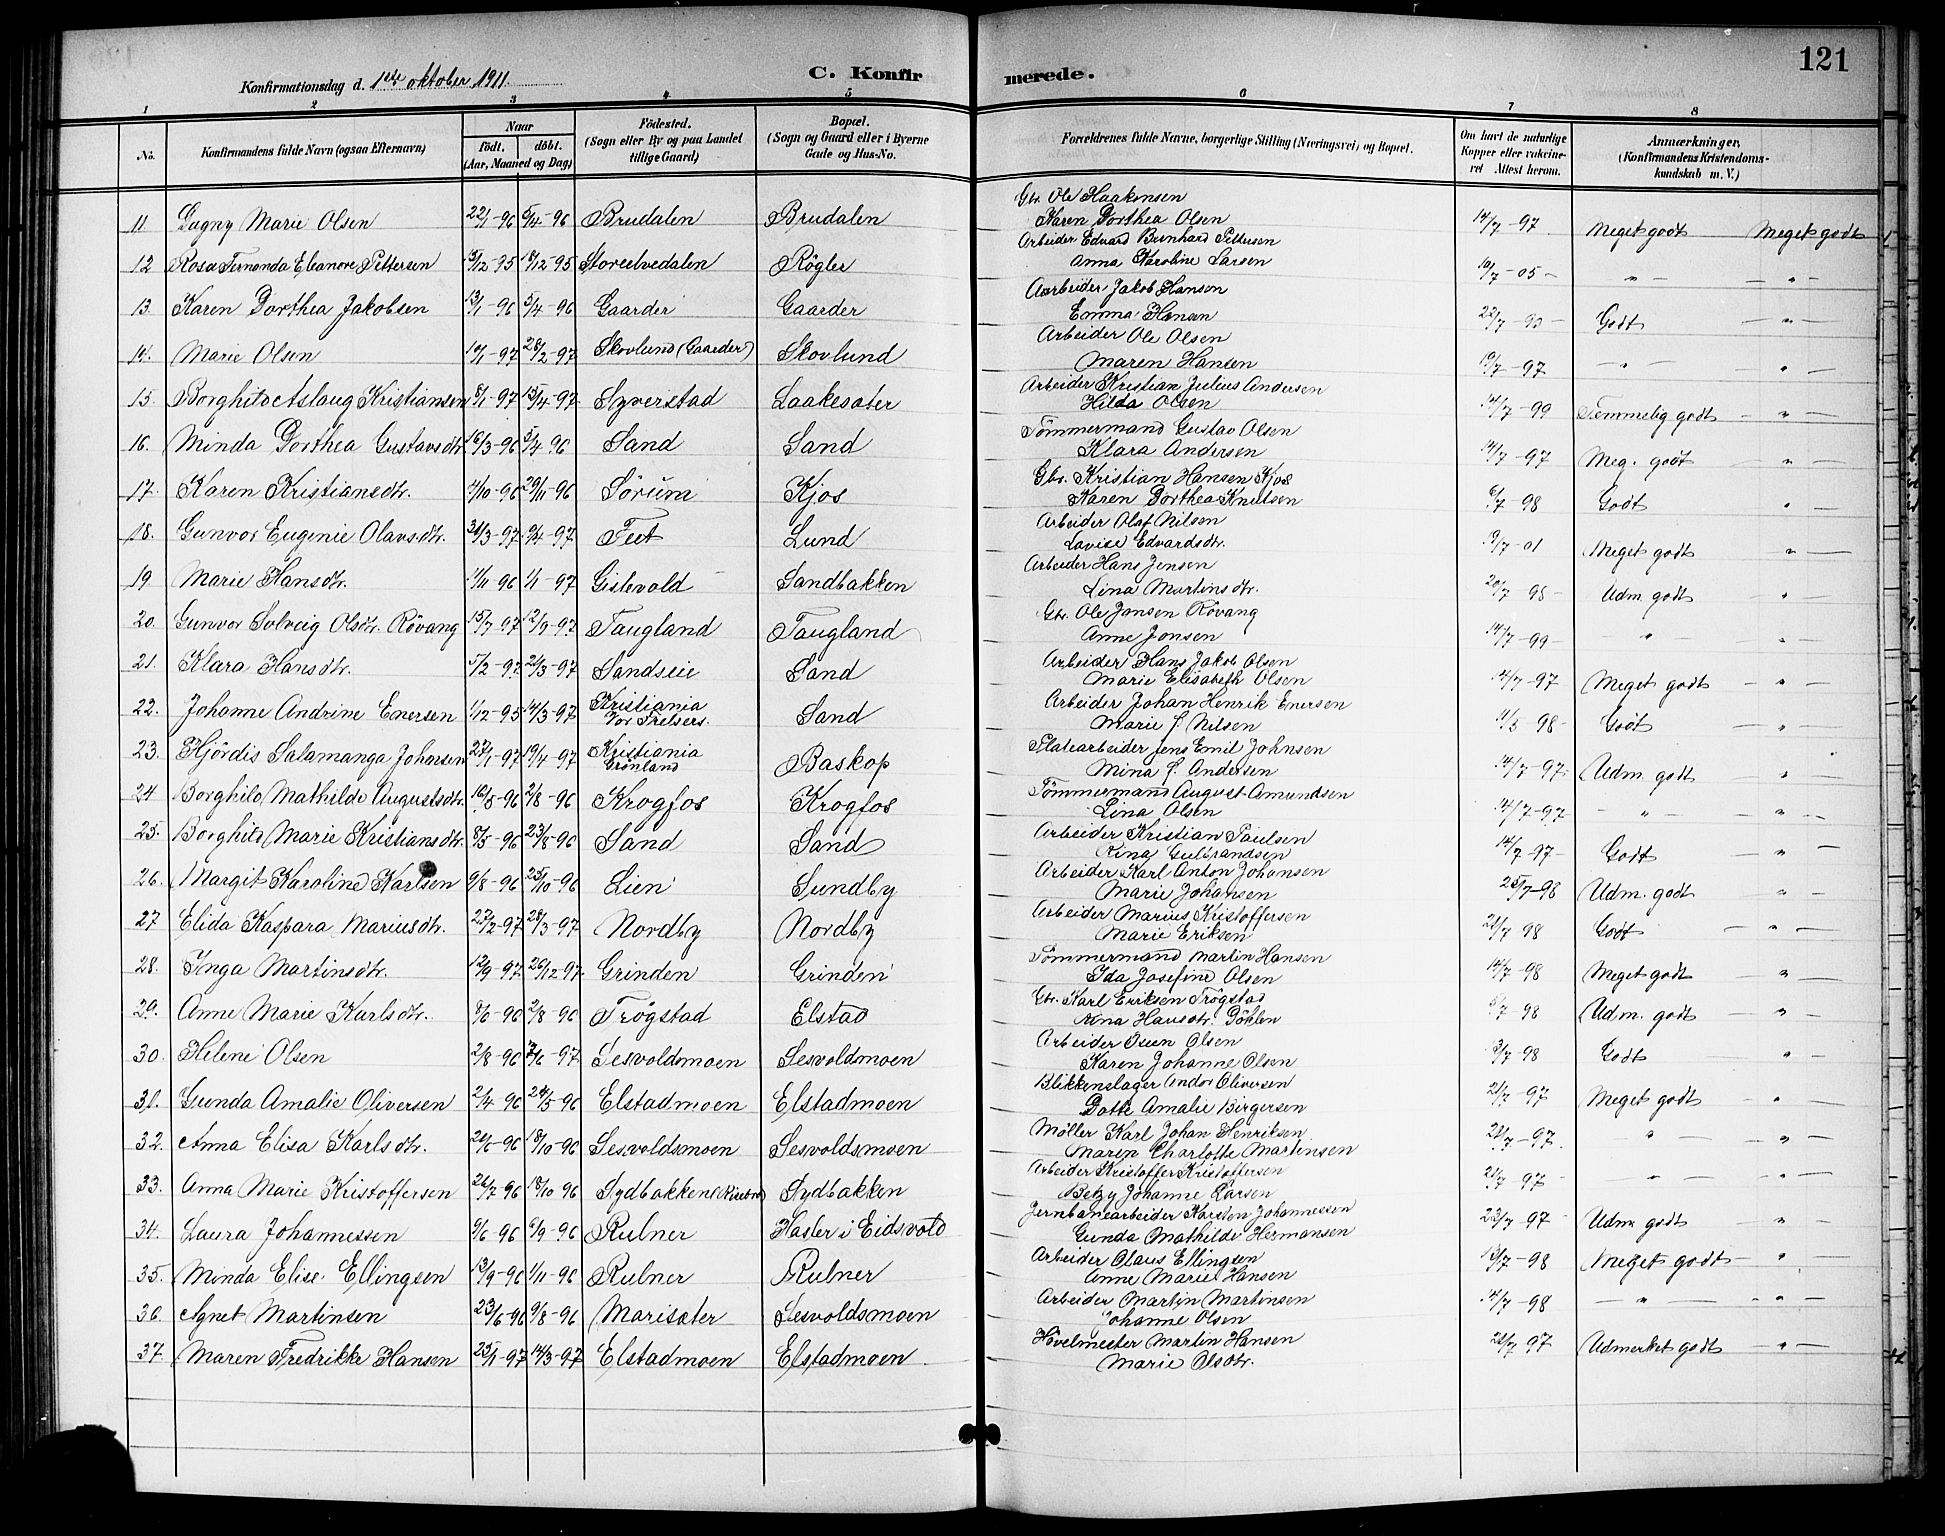 121
Konfirmationsdag d. 1ste oktober 1911.
C. Konfirmerede.
1 2 3 4 5 6 7 8
No.
Konfirmandens fulde Navn (ogsaa Efternavn)
Naar
födt. döbt.
(Aar, Maaned og Dag)
Födested.
(Sogn eller By og paa Landet
tillige Gaard)
Bopæl.
(Sogn og Gaard eller i Byerne
Gade og Hus-No.
Forældrenes fulde Navne, borgerlige Stilling (Næringsvei) og Bopæl.
Om havt de naturlige
Kopper eller vakcine-
ret Attest herom.
Anmærkninger,
(Konfirmandens Kristendoms-
kundskab m. V.)
11 Gagny Marie Olsen 22/1-96 5/4-96 Brudalen Brudalen Gbr. Ole Haakensen
Karen Dorthea Olsen 14/7-97 Meget godt Meget godt
12 Rosa Fernanda Eleanore Pettersen 15/12-95 Rögler Arbeider Edvard Bernhard Pettersen
Anna Karoline Larsen 10/7-05 - " - - " -
13. Karen Dorthea Jakobsen 13/1-96 5/4-96 Gaarder Gaarder Arbeider Jakob Hansen
Emma Hansen Godt - " -
14. Marie Olsen 28/2-97 Skovlund (Gaarder) Skovlund Arbeider Ole Olsen
Maren Hansen 19/7-97 - " - " -
15. Borghild Aslaug Kristiansen 8/1-97 Syverstad Laakesater Arbeider Kristian Julius Andersen
Hilda Olsen 14/7-99 Temmelig godt - " -
16. Minda Dorthea Gustavsdtr. 16/3-96 5/4 96 Sand Sand Tömmermand Gustav Olsen
Klara Andersen 14/7-97 Meg. godt - " -
17. Karen Kristiansdtr. 29/11-96 Sörum Kjos Gbr. Kristian Hansen Kjos
Karen Dorthea Knutsen 6/7 98 Godt " -
18. Gunvor Eugenie Olavsdtr. 31/3-97 Fet Lund Arbeider Olaf Nilsen
Lovise Edvardsdtr. 19/7-01 Meget godt " -
19 Marie Hansdtr. 1/1-97 Gislevold Sandbakken Arbeider Hans Jensen
Lina Martinsdtr. Udm. godt " -
20. Gunvor Solveig Olsdtr. Rövang 15/7-97 12/9-97 Taugland Taugland Gbr. Ole Jonsen Rövang
Anne Jonsen 14/7-99- " " -
21. Klara Hansdtr. 21/3-97 Sandseie Sand Arbeider Hans Jakob Olsen
Marie Elisabeth Olsen 14/7-97 Meget godt - " -
22. Johanne Andrine Enersen 1/12-95 14/3-97 Kristiania
Vor Frelsers. Sand Arbeider Johan Henrik Enersen
Marie f. Nilsen Godt - "
23. Hjördis Salamanga Johnsen 27/1-97 19/4-97 Kristiania
Grönland Baskop Platearbeider Jens Emil Johnsen
Mina f. Andersen 14/7-97. Udm. godt "
24 Borghild Mathilde Augustsdtr. 16/5-96 2/8-96 Krogfos Krogfos Tömmermand August Amundsen
Lina Olsen 14/7-97 - " - " -
25. Borghild Marie Kristiansdtr. 8/5-96 23/8-96 Sand Sand Arbeider Kristian Paulsen
Lina Gulbrandsen 14/7-97- Godt - " -
26. Margit Karoline Karlsen 9/8-96 25/10-96 Lien Sundby Arbeider Karl Anton Johansen
Marie Johansen 25/7-98 Udm. godt " -
27 Elida Kaspara Mariusdtr. 27/2-97 28/3-97 Nordby Nordby Arbeider Marius Kristoffersen
Marie Eriksen 21/7 98 Godt - " -
28. Inga Martinsdtr. 12/9-97 26/12-97 Grinden Grinden Tömmermand Martin Hansen
Ida Josefine Olsen 14/7-98 Meget godt " -
29. Anne Marie Karlsdtr. 8/6-96 2/8-96 Trögstad Elstad Gbr. Karl Eriksen Trögstad
Hansdtr. 98 Udm. godt - " -
30. Helene Olsen 2/8-96 Lesvoldsmoen Lesvoldsmoen Arbeider Olsen
Karen Johanne Olsen 13/7-98 Godt " -
31. Gunda Amalie Oliversen 2/4-96 24/5-96 Elstadmoen Elstadmoen Blikkenslager Andor Oliversen
Amalie Birgersen 21/7-97 Meget godt - " -
32. Anna Elisa Karlsdtr. 18/10-96 Lesvoldsmoen Lesvoldsmoen Möller Karl Johan Henriksen
Maren Charlotte Martinsen 21/7-97. - " - " -
33. Anna Marie Kristoffersen 26/7 96 18/10 96 Sydbakken Sydbakken Arbeider Kristoffer Kristoffersen
Betzy Johanne Larsen 21/7-97 - " - - " -
34. Laura Johannessen 9/6 96 6/9-96 Rulner Hasler i Eidsvold Jernbanearbeider Karsten Johannessen
Gunda Mathilde Hermansen 23/7-97 Udm godt " -
35. Minda Elise Ellingsen 13/9-96 1/11-96 Rulner Rulner Arbeider Olaus Ellingsen
Anne Marie Hansen 13/7-98 Meget godt - "
36. Agnet Martinsen 23/6-96 9/8-96 Marisater Lesvoldsmoen Arbeider Martin Martinsen
Johanne Olsen 14/7-98 - " - - " -
37. Maren Fredrikke Hansen 25/1-97 14/3-97 Elstadmoen Elstadmoen Hövelmester Martin Hansen
Marie Olsdtr. 21/7 97 Udmerket godt - " -